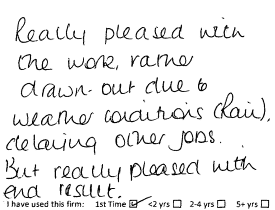 Really pleased with
the work, rather
drawn-out due to
weather conditions (Rain),
delaying other jobs.
But really pleased with
end result.
I have used this firm: 1st Time ☑ <2 yrs ☐ 2-4 yrs ☐ 5+ yrs ☐